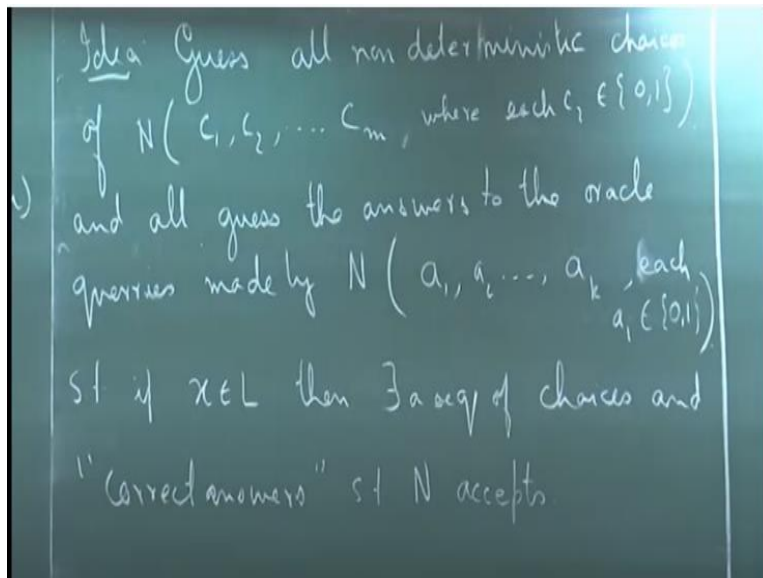 Idea Guess all non deterministic choices
of N ( c₁, c₂, .... cₘ, where each cᵢ ∈ {0,1})
and all guess the answers to the oracle
querries made by N ( a₁, a₂ ..., aₖ, each
aᵢ ∈ {0,1})
st if x ∈ L then ∃ a seq of choices and
"correct answers" st N accepts.